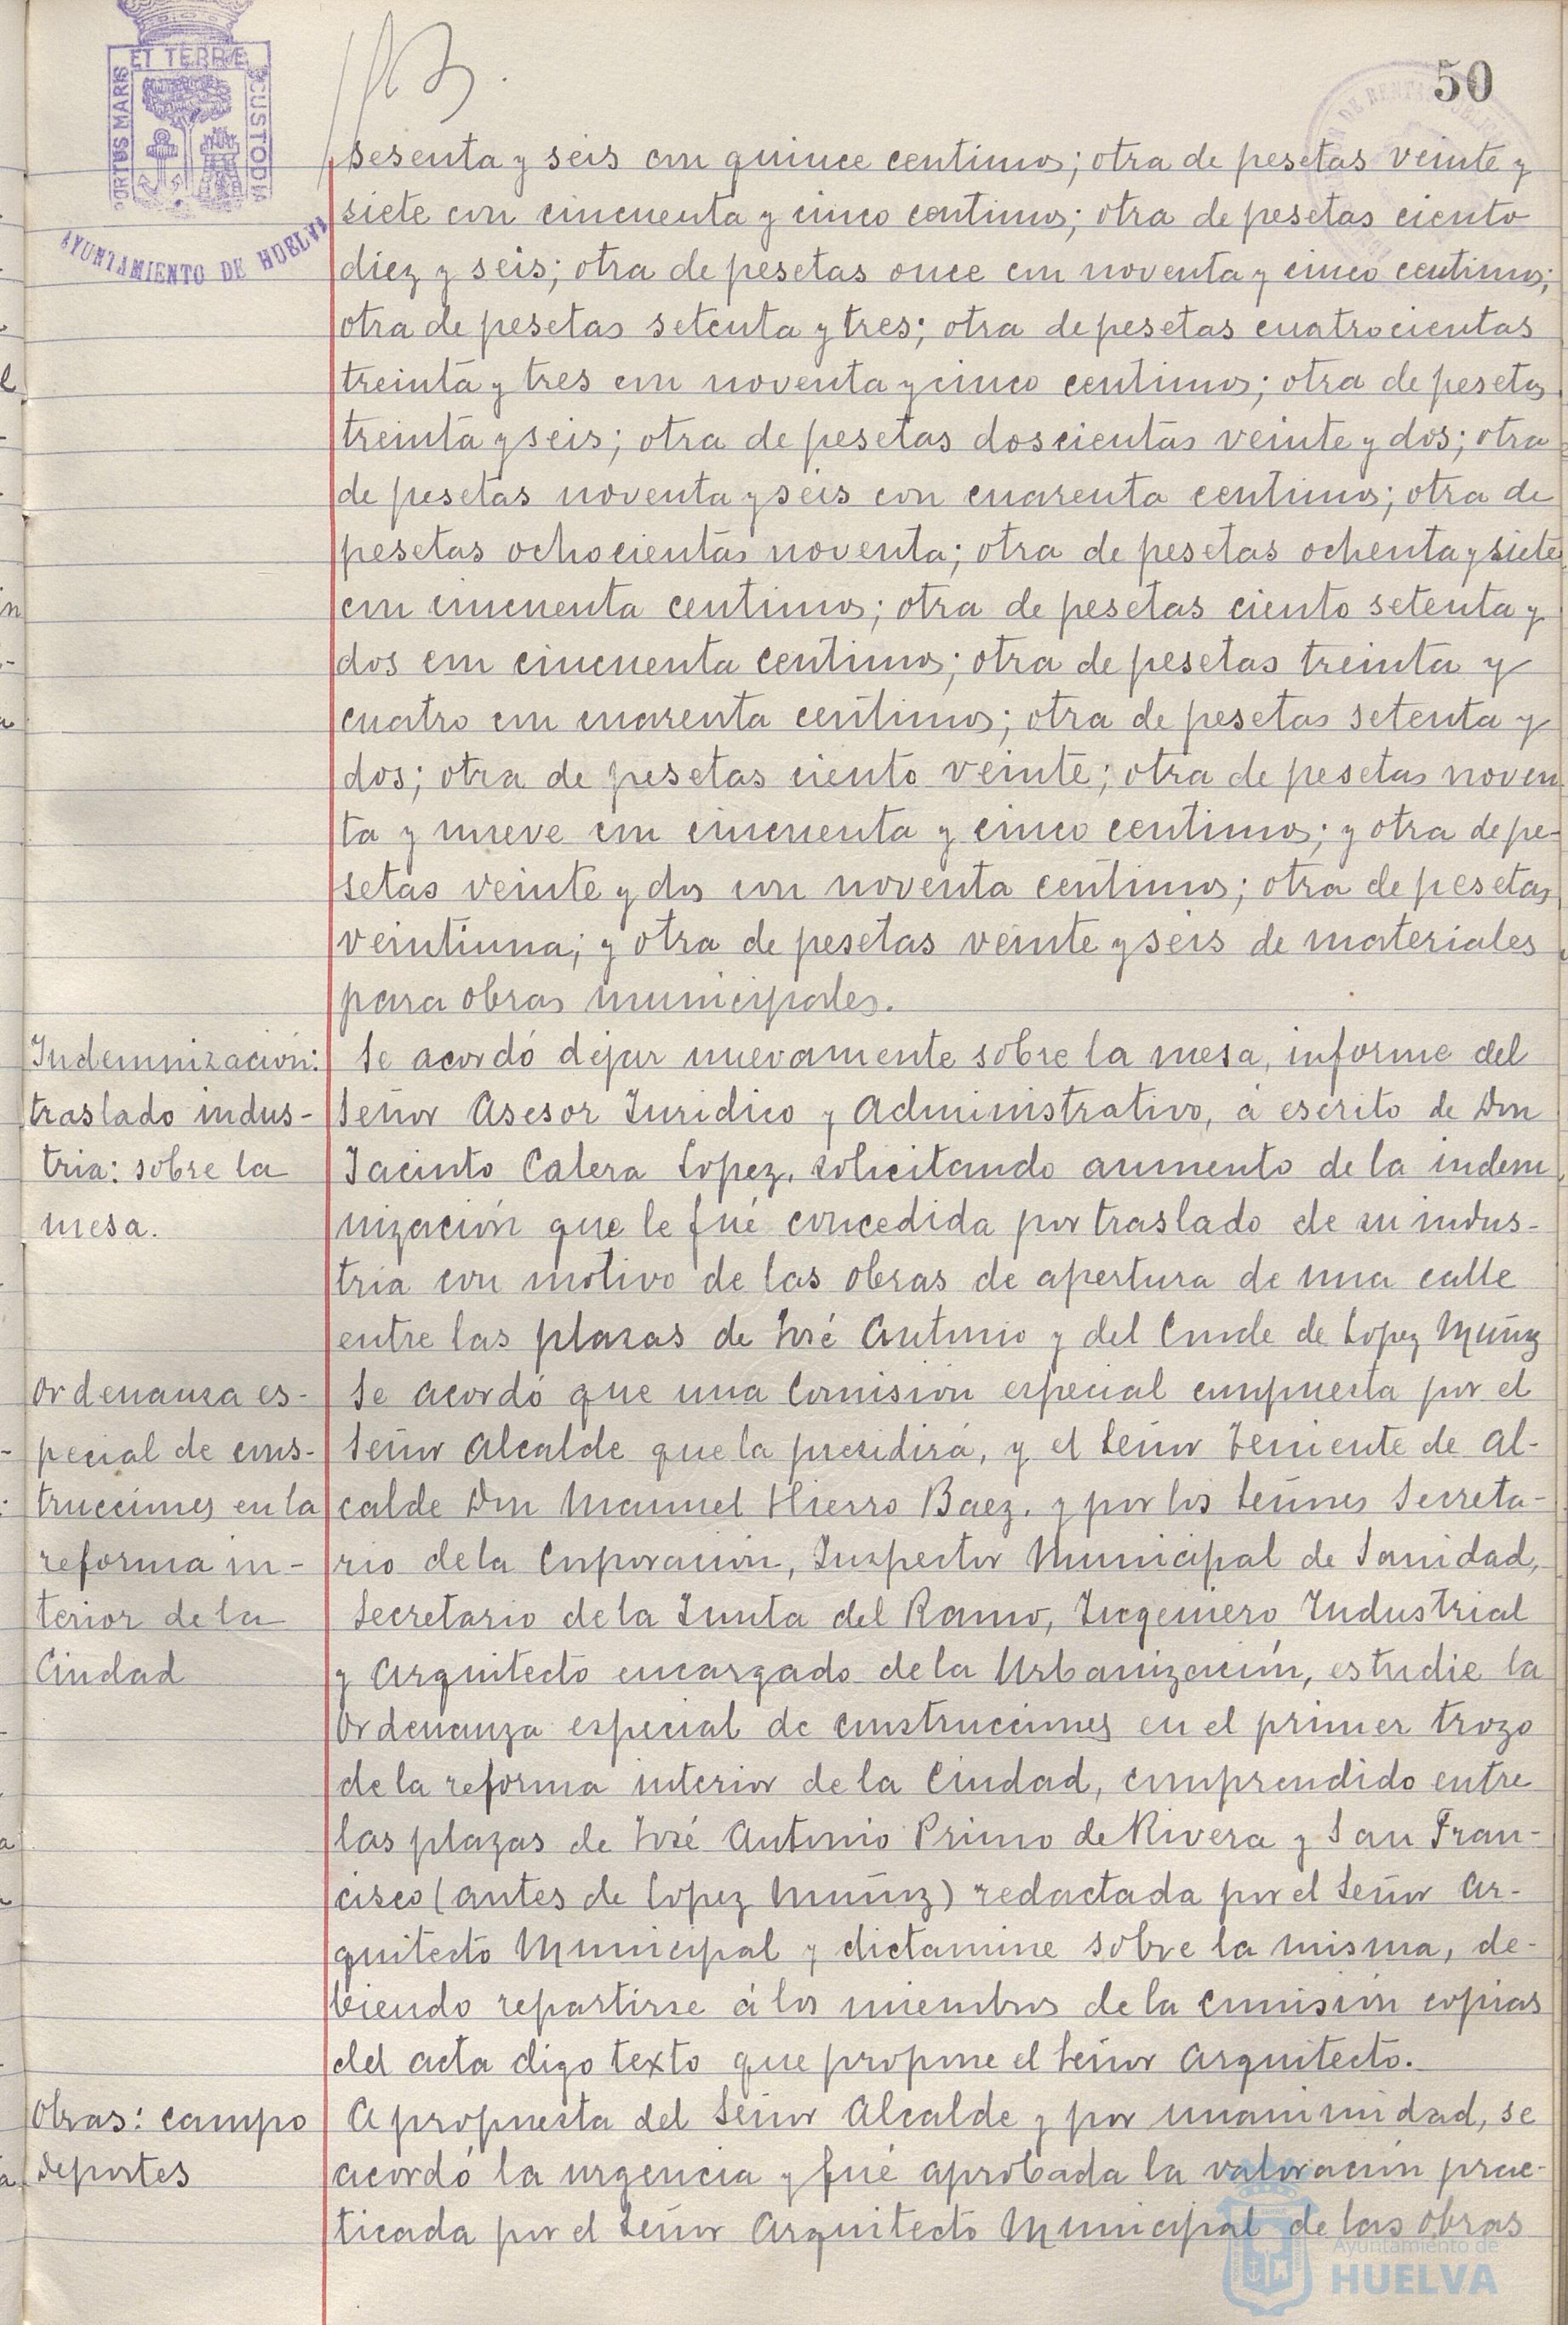 50
PORTUS MARIS
ET TERRÆ
CUSTODIA
AYUNTAMIENTO DE HUELVA
sesenta y seis con quince centimos; otra de pesetas veinte y
siete con cincuenta y cinco centimos; otra de pesetas ciento
diez y seis; otra de pesetas once con noventa y cinco centimos;
otra de pesetas setenta y tres; otra de pesetas cuatrocientas
treinta y tres con noventa y cinco centimos; otra de pesetas
treinta y seis; otra de pesetas doscientas veinte y dos; otra
de pesetas noventa y seis con cuarenta centimos; otra de
pesetas ochocientas noventa; otra de pesetas ochenta y siete
con cincuenta centimos; otra de pesetas ciento setenta y
dos con cincuenta centimos; otra de pesetas treinta y
cuatro con cuarenta centimos; otra de pesetas setenta y
dos; otra de pesetas ciento veinte; otra de pesetas noven
ta y nueve con cincuenta y cinco centimos; y otra de pe-
setas veinte y dos con noventa centimos; otra de pesetas
veintiuna; y otra de pesetas veinte y seis de materiales
para obras municipales.
Indemnización:
traslado indus-
tria: sobre la
mesa.
Se acordó dejar nuevamente sobre la mesa, informe del
Señor Asesor Juridico y Administrativo, á escrito de Don
Jacinto Calera Lopez, solicitando aumento de la indem
nización que le fué concedida por traslado de su indus-
tria con motivo de las obras de apertura de una calle
entre las plazas de José Antonio y del Conde de Lopez Muñoz
Ordenanza es-
pecial de cons-
trucciones en la
reforma in-
terior de la
Ciudad
Se acordó que una Comisión especial compuesta por el
Señor Alcalde que la presidirá, y el Señor Teniente de Al-
calde Don Manuel Hierro Baez, y por los Señores Secreta-
rio de la Corporación, Inspector Municipal de Sanidad,
Secretario de la Junta del Ramo, Ingeniero Industrial
y Arquitecto encargado de la Urbanización, estudie la
Ordenanza especial de construcciones en el primer trozo
de la reforma interior de la Ciudad, comprendido entre
las plazas de José Antonio Primo de Rivera y San Fran-
cisco (antes de Lopez Muñoz) redactada por el Señor Ar-
quitecto Municipal y dictamine sobre la misma, de-
biendo repartirse á los miembros de la Comisión copias
del acta digo texto que propone el Señor Arquitecto.
Obras: campo
deportes
A propuesta del Señor Alcalde y por unanimidad, se
acordó la urgencia y fué aprobada la valoración prac-
ticada por el Señor Arquitecto Municipal de las obras
Ayuntamiento de
HUELVA